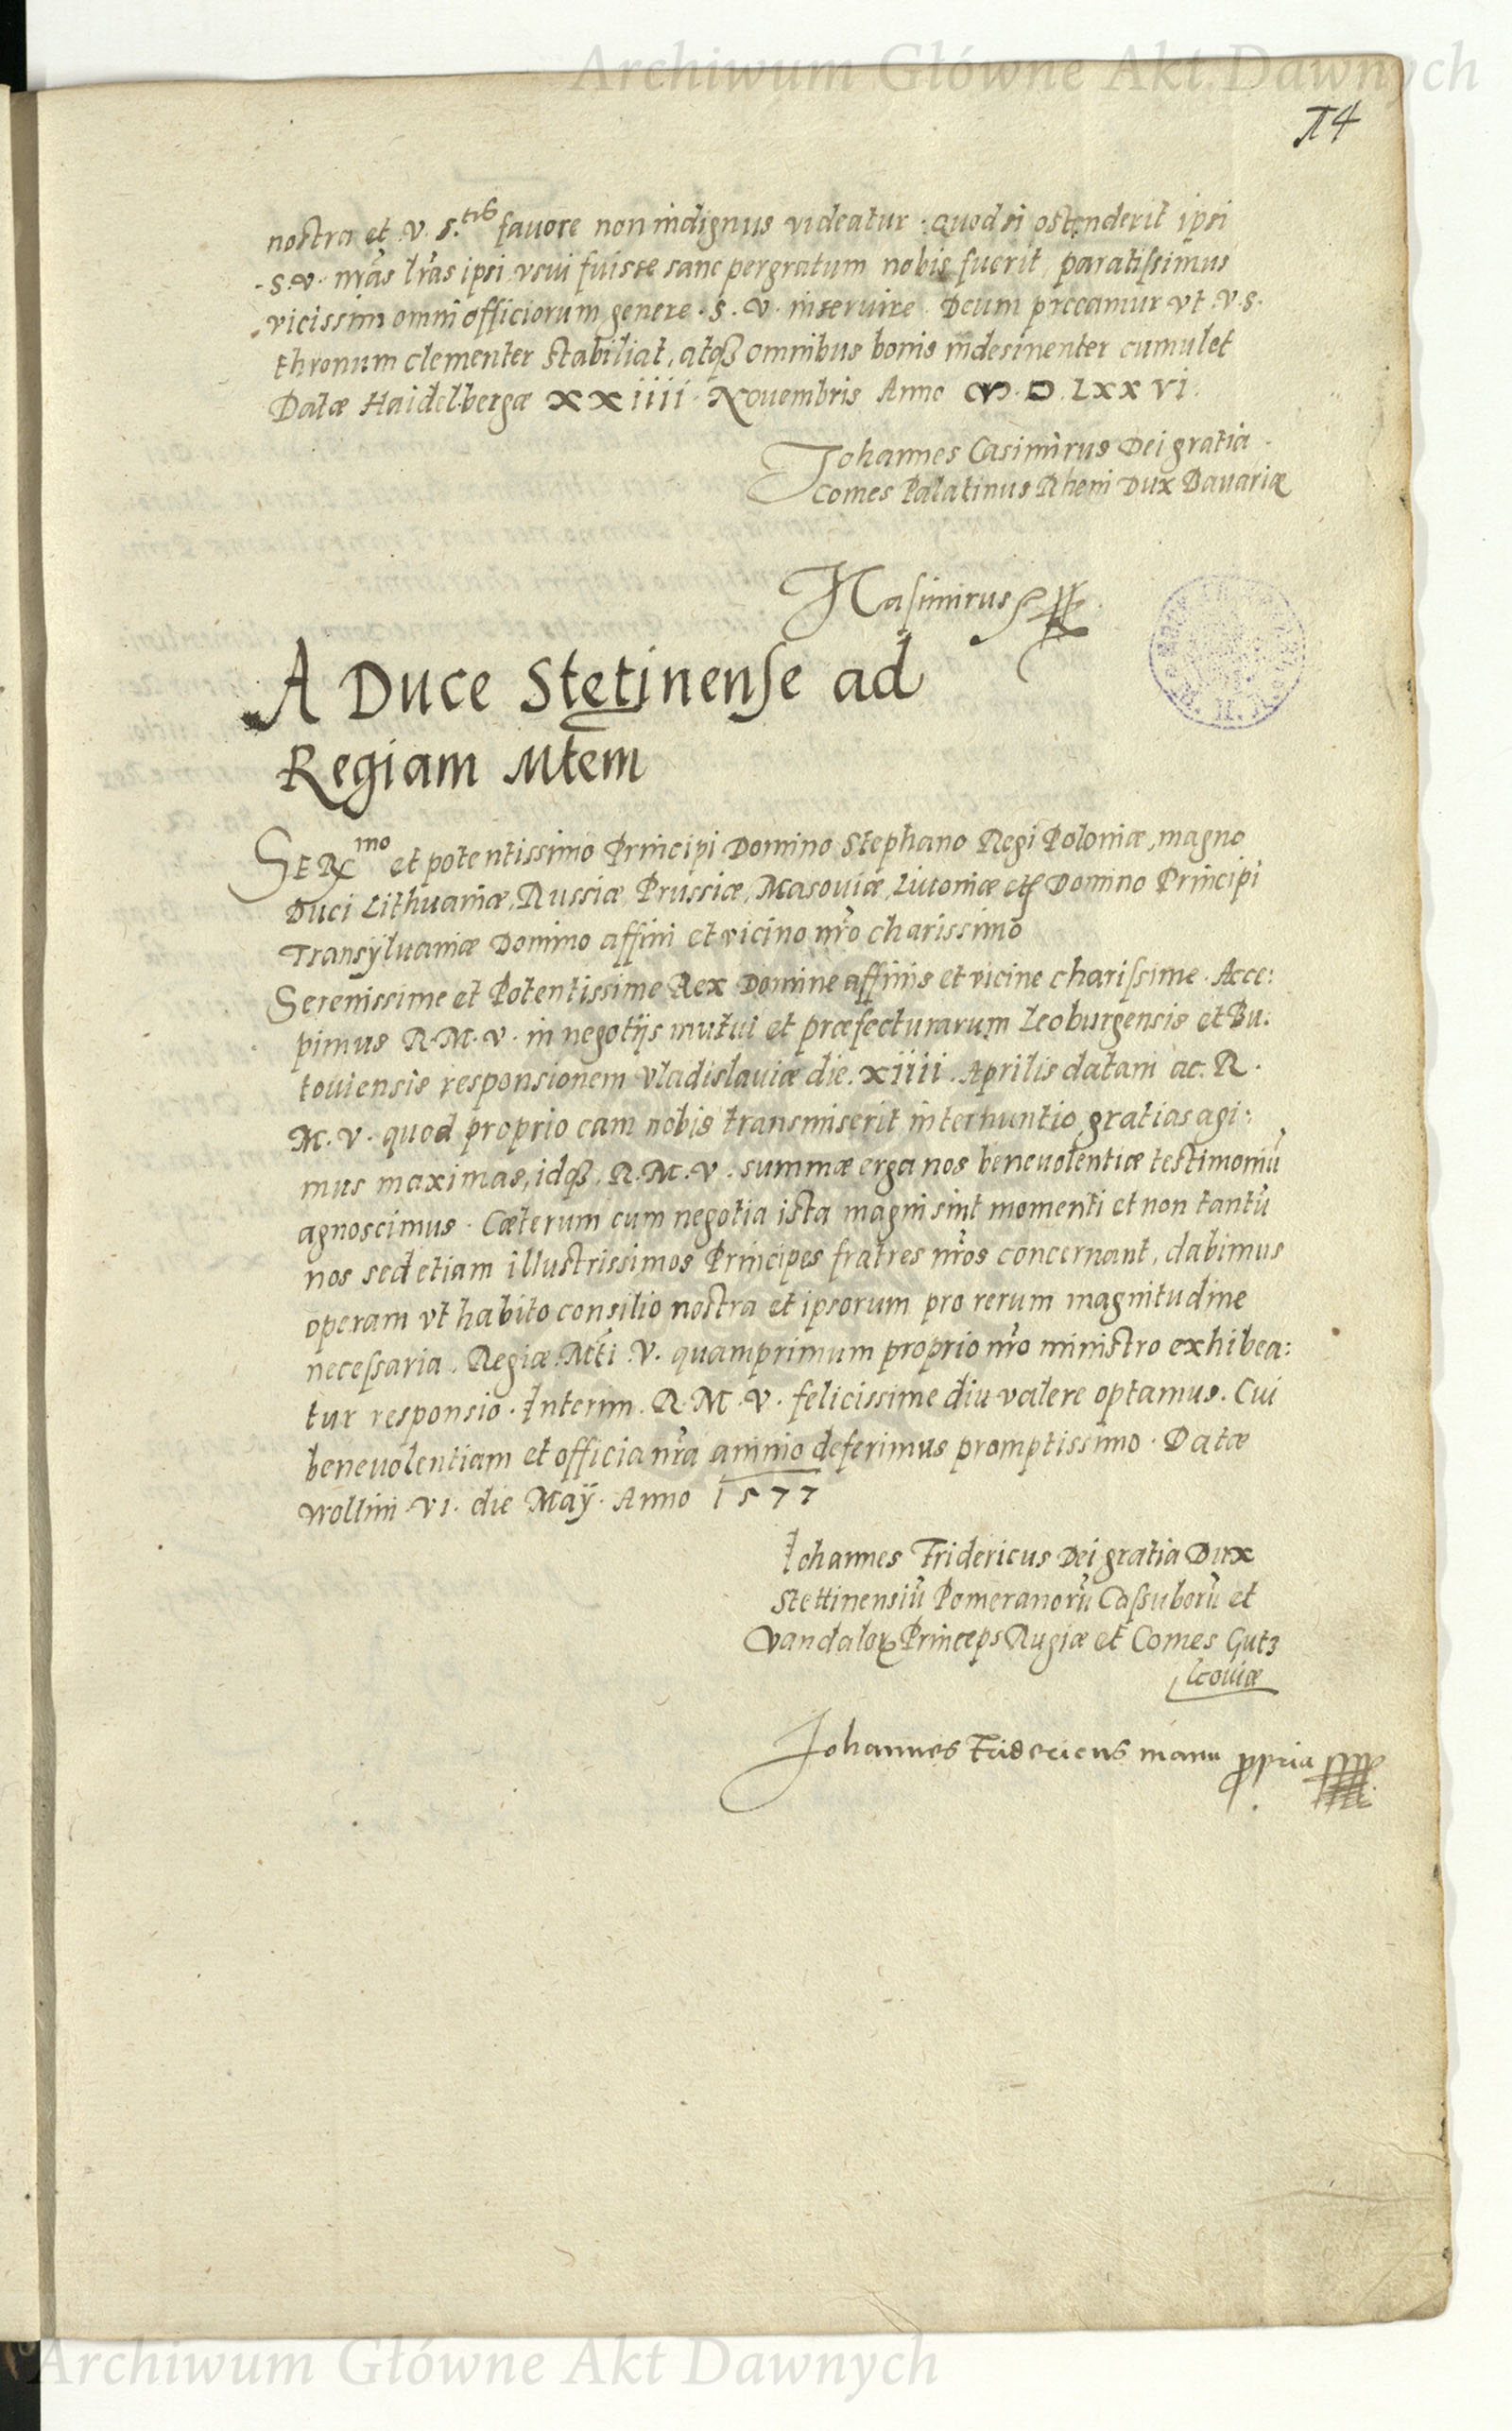 Archiwum Główne Akt Dawnych
74
nostra et v. s.tis favore non indignus videatur. Quod si ostenderit ipsi
S. V. nr̃as lr̃as ipsi vsui fuisse sane pergratum nobis fuerit, paratissimus
vicissim omni officiorum genere. S. V. inseruire. Deum precamur vt V. S.
thronum clementer stabiliat, atqꝫ omnibus bonis indesinenter cumulet
Datæ Haidelbergæ XXiiii. Nouembris Anno M. D. LXXVi.
Johannes Casimirus Dei gratia
Comes Palatinus Rheni Dux Bauariæ
HCasimirus
A Duce Stetinense ad
Regiam Mtem
Serx̃mo et potentissimo Principi Domino Stephano Regi Poloniæ, magno
Duci Lithuaniæ, Russiæ Prussiæ, Masouiæ, Liuoniæ etc Domino Principi
Transÿluaniæ Domino affini et vicino nr̃o charissimo
Serenissime et Potentissime Rex Domine affinis et vicine charissime. Acce:
pimus R. M. V. in negotijs mutui et præfecturarum Leoburgensis et Bu:
touiensis responsionem Vladislauiæ die. xiiii. Aprilis datam ac. R.
M. V. quod proprio eam nobis transmiserit internuntio gratias agi:
mus maximas, idqꝫ. R. M. V. summæ erga nos beneuolentiæ testimoniũ
agnoscimus. Cæterum cum negotia ista magni sint momenti et non tantũ
nos sed etiam illustrissimos Principes fratres nr̃os concernant, dabimus
operam vt habito consilio nostra et ipsorum pro rerum magnitudine
necessaria. Regiæ. Mti. V. quamprimum proprio nr̃o ministro exhibea:
tur responsio. Interim. R. M. V. felicissime diu valere optamus. Cui
beneuolentiam et officia nr̃a animo deferimus promptissimo. Datæ
Wollini. VI. die Maÿ. Anno 1577
Iohannes Fridericus Dei gratia Dux
Stettinensiũ Pomeranorũ Cassuborũ et
Vandaloꝝ Princeps Rugiæ et Comes Gutz
couiæ
Johannes Fridericus manu ppria
Archiwum Główne Akt Dawnych